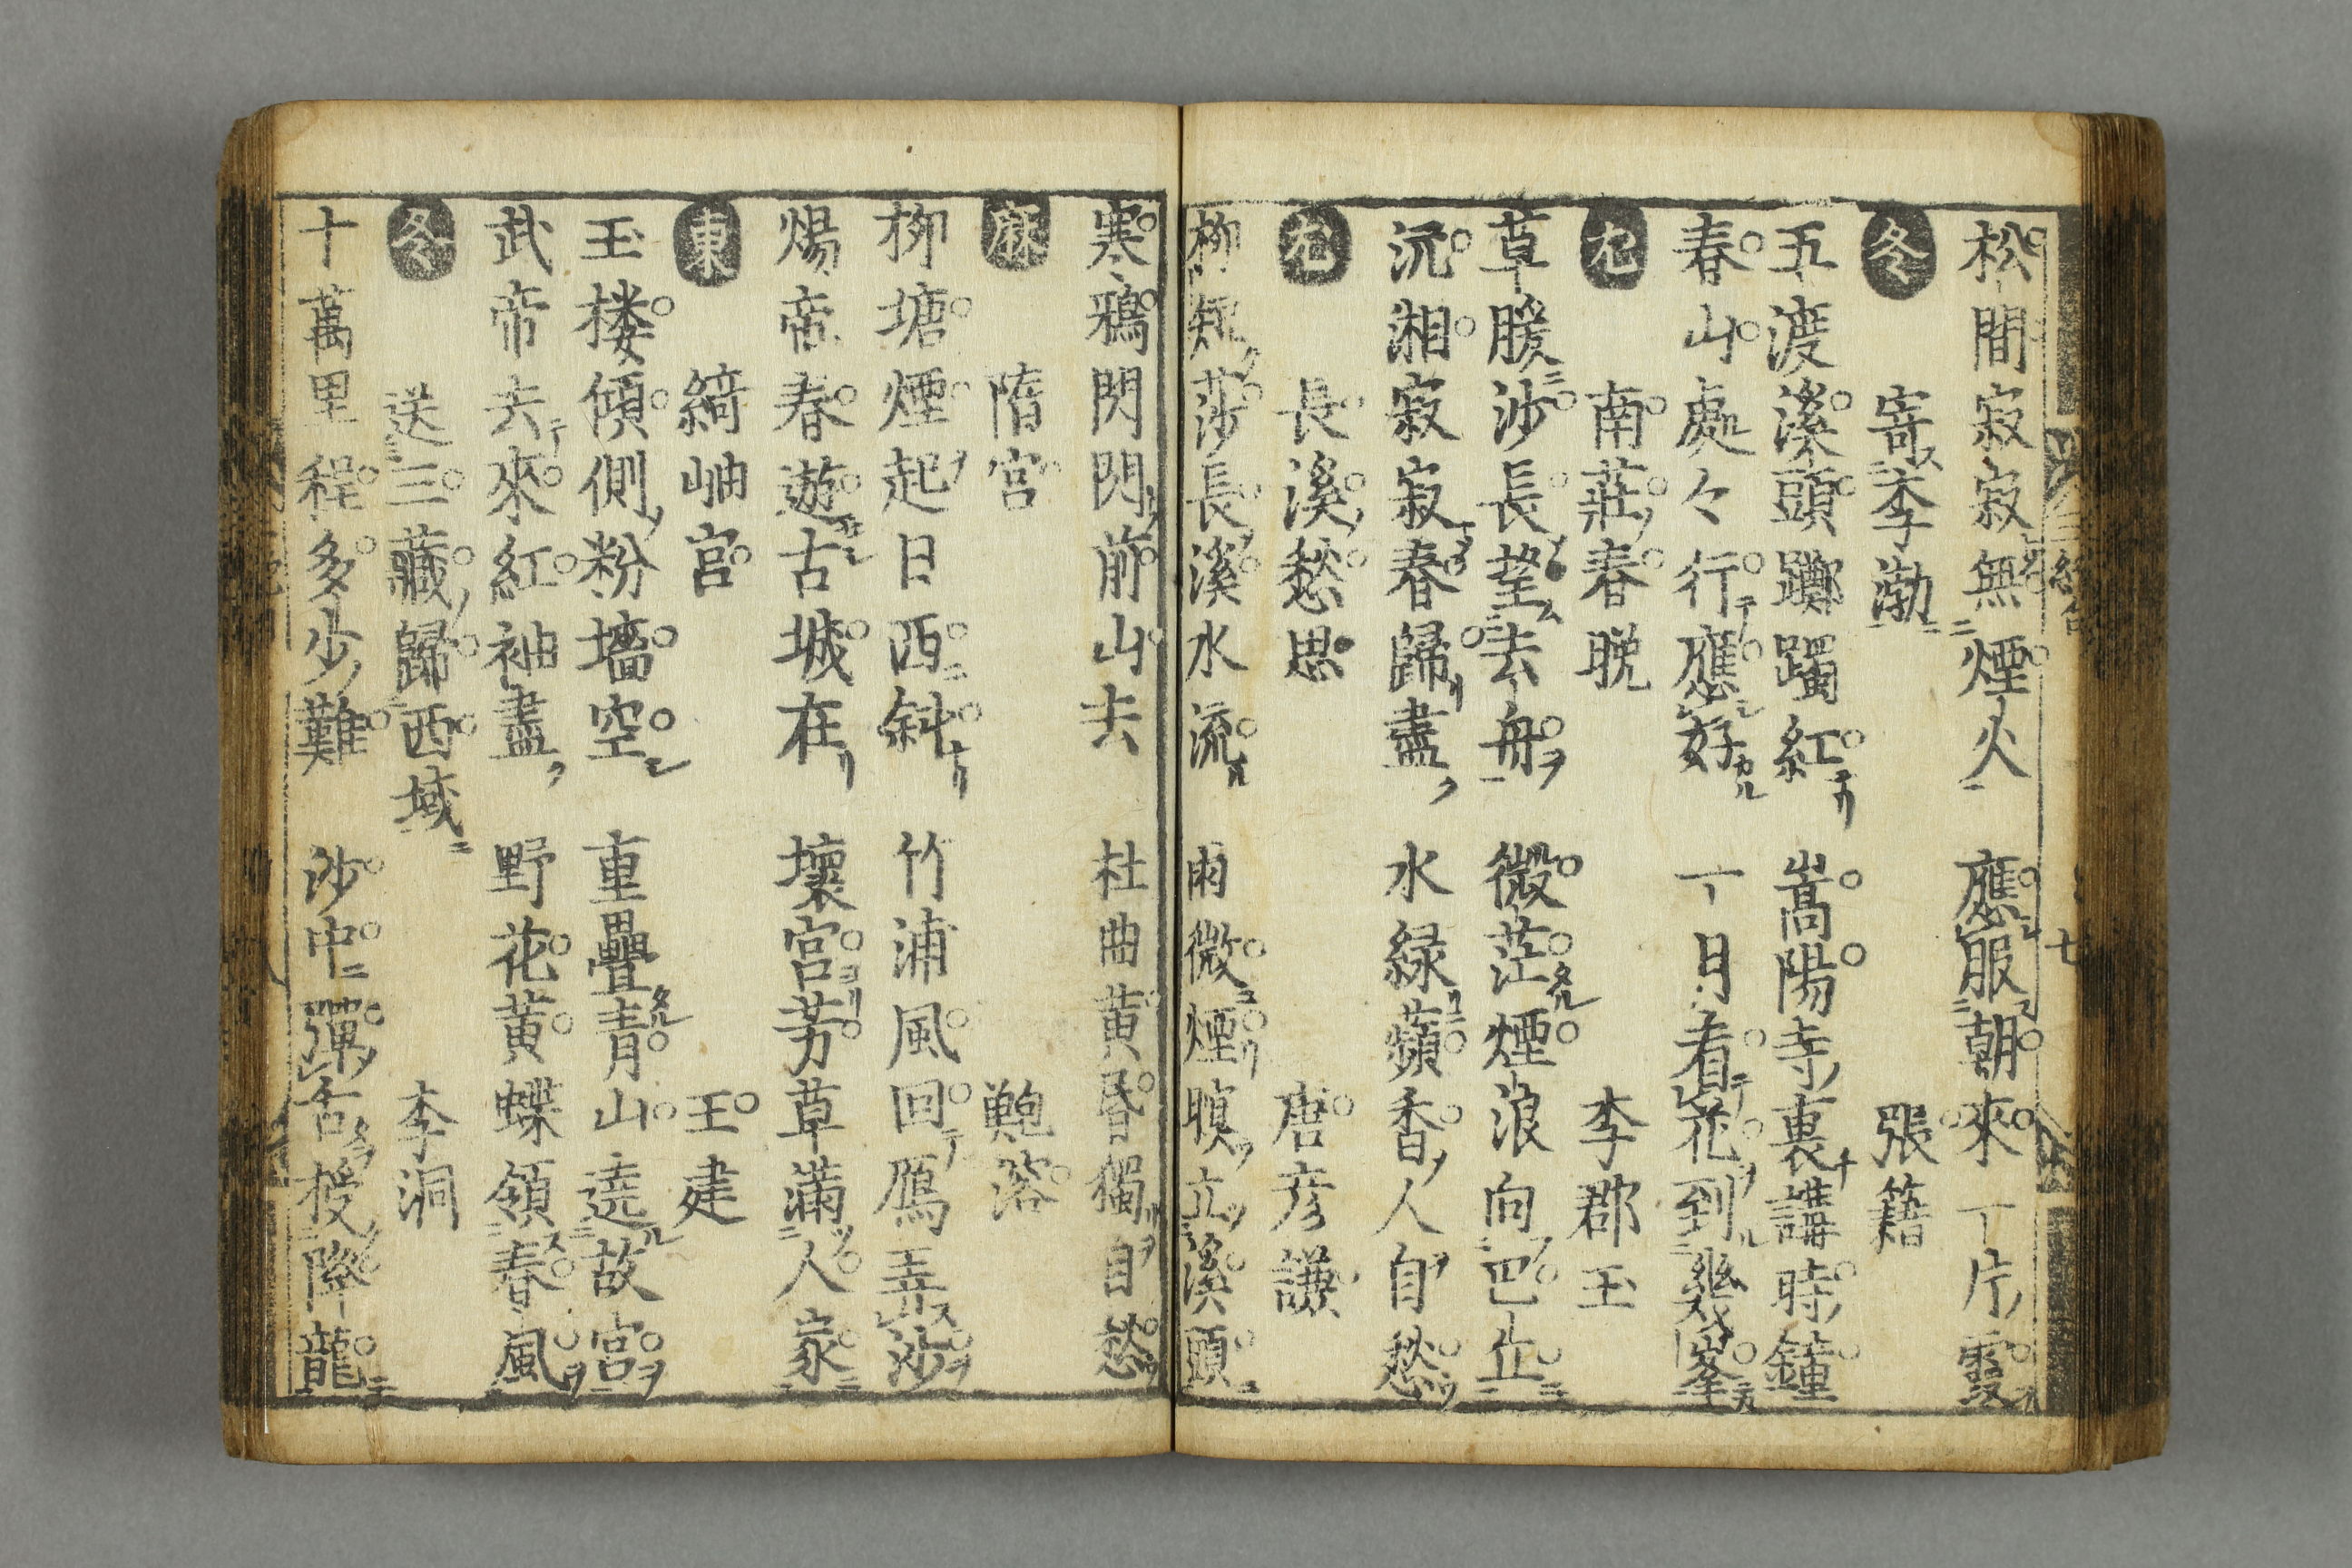 松間寂寂無煙火　應服朝來一片霞
冬　寄李渤　張籍
五渡溪頭躑躅紅　嵩陽寺裏講時鐘
春山處々行應好　一月看花到幾峯
尤　南莊春晚　李郡玉
草暖沙長望去舟　微茫煙浪向巴丘
沅湘寂寂春歸盡　水緑蘋香人自愁
尤　長溪愁思　唐彦謙
柳短莎長溪水流　雨微煙暝立溪頭
寒鴉閃閃前山去　杜曲黄昏獨自愁
麻　隋宮　鮑溶
柳塘煙起日西斜　竹浦風回鴈弄沙
煬帝春遊古城在　壞宮芳草滿人家
東　綺岫宮　王建
玉楼傾側粉墻空　重疊青山遶故宮
武帝去來紅袖盡　野花黄蝶領春風
冬　送三藏歸西域　李洞
十萬里程多少難　沙中彈舌授降龍